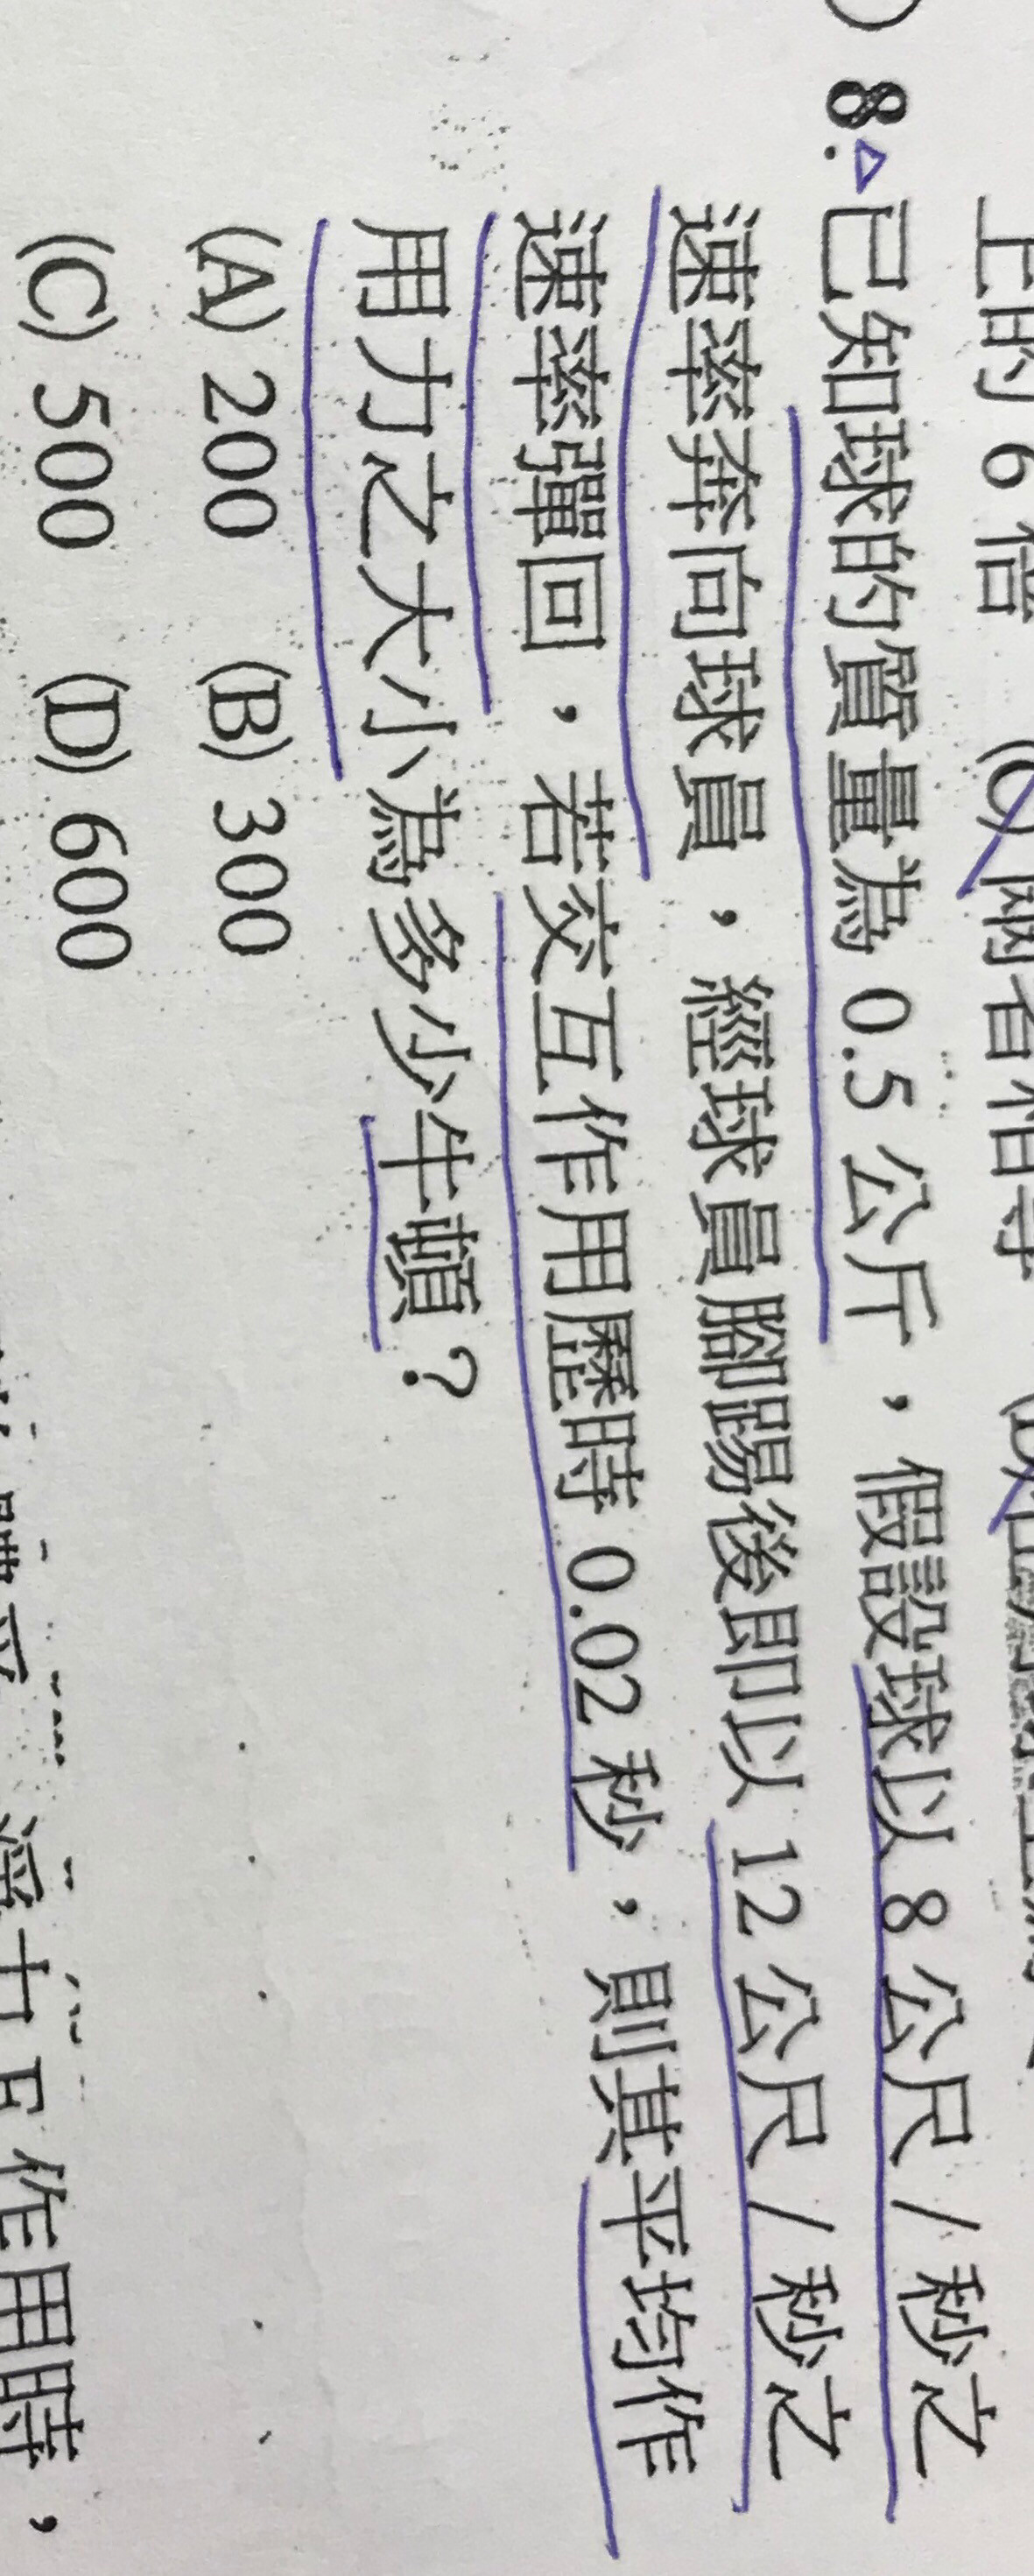 上的 6 倍 (C) 兩者相等
8. 已知球的質量為 0.5 公斤，假設球以 8 公尺／秒之
速率奔向球員，經球員腳踢後即以 12 公尺／秒之
速率彈回，若交互作用歷時 0.02 秒，則其平均作
用力之大小為多少牛頓？
(A) 200 (B) 300
(C) 500 (D) 600
作用時，